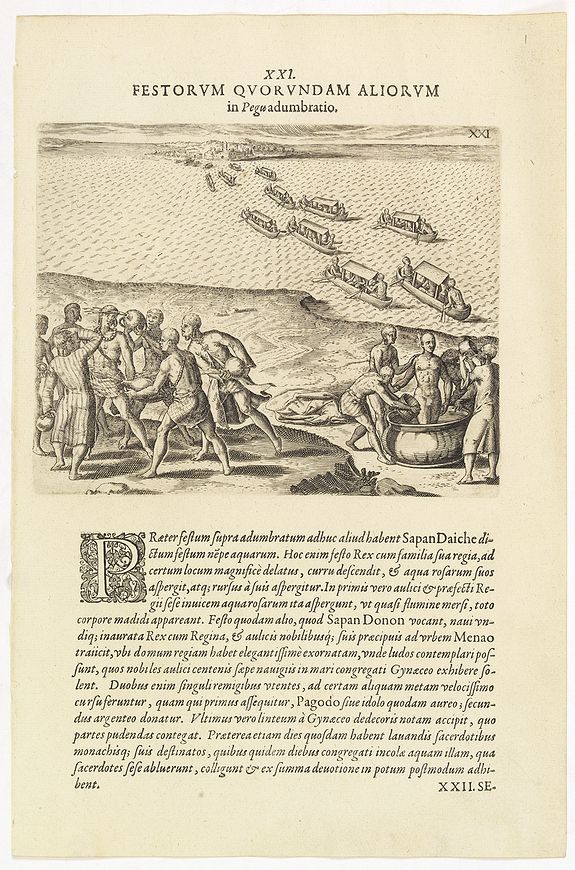 XXI.
FESTORVM QVORVNDAM ALIORVM
in Pegu adumbratio.
XXI
PRæter festum supra adumbratum adhuc aliud habent Sapan Daiche di-
ctum festum nẽpe aquarum. Hoc enim festo Rex cum familia sua regia, ad
certum locum magnificè delatus, curru descendit, & aqua rosarum suos
aspergit, atq; rursus à suis aspergitur. In primis vero aulici & præfecti Re-
gii sese inuicem aqua rosarum ita aspergunt, vt quasi flumine mersi, toto
corpore madidi appareant. Festo quodam alio, quod Sapan Donon vocant, naui vn-
diq; inaurata Rex cum Regina, & aulicis nobilibusq; suis præcipuis ad vrbem Menao
traiicit, vbi domum regiam habet elegantissimè exornatam, vnde ludos contemplari pos-
sunt, quos nobiles aulici centenis sæpe nauigiis in mari congregati Gynæceo exhibere so-
lent. Duobus enim singuli remigibus vtentes, ad certam aliquam metam velocissimo
cursu feruntur, quam qui primus assequitur, Pagodo siue idolo quodam aureo; secun-
dus argenteo donatur. Vltimus vero linteum à Gynæceo dedecoris notam accipit, quo
partes pudendas contegat. Prætereaetiam dies quosdam habent lauandis sacerdotibus
monachisq; suis destinatos, quibus quidem diebus congregati incolæ aquam illam, qua
sacerdotes sese abluerunt, colligunt & ex summa deuotione in potum postmodum adhi-
bent.
XXII. SE-